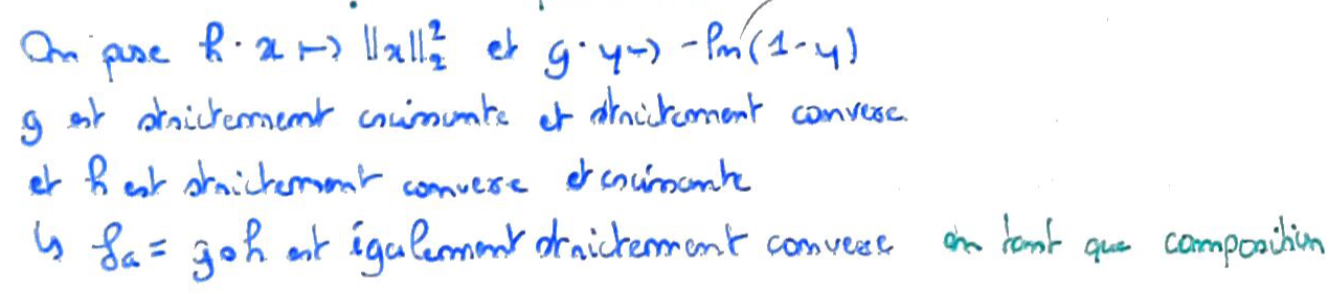 On pose h : x ↦ ||x||₂² et g : y ↦ -ln(1-y)
g est strictement croissante et strictement convexe.
et h est strictement convexe et croissante
↳ fa = g∘h est également strictement convexe en tant que composition